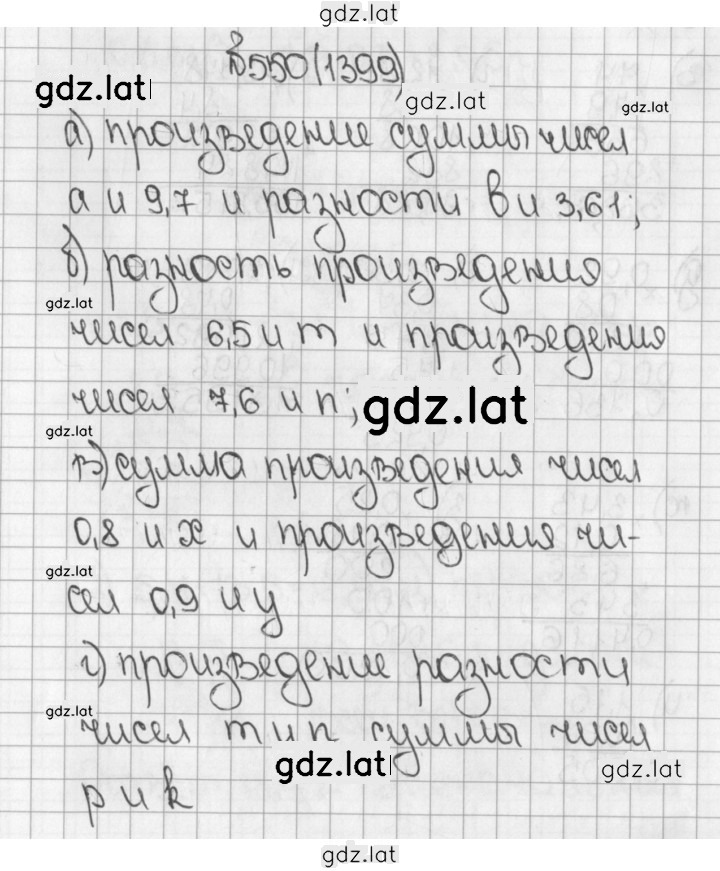 gdz.lat
№550(1399)
gdz.lat
gdz.lat
gdz.lat
а) произведение суммы чисел
а и 9,7 и разности в и 3,61;
б) разность произведения
gdz.lat
чисел 6,5 и m и произведения
чисел 7,6 и n;
gdz.lat
gdz.lat
в) сумма произведения чисел
0,8 и x и произведения чи-
gdz.lat
сел 0,9 и y
г) произведение разности
gdz.lat
чисел m и n суммы чисел
gdz.lat
gdz.lat
p и k
gdz.lat